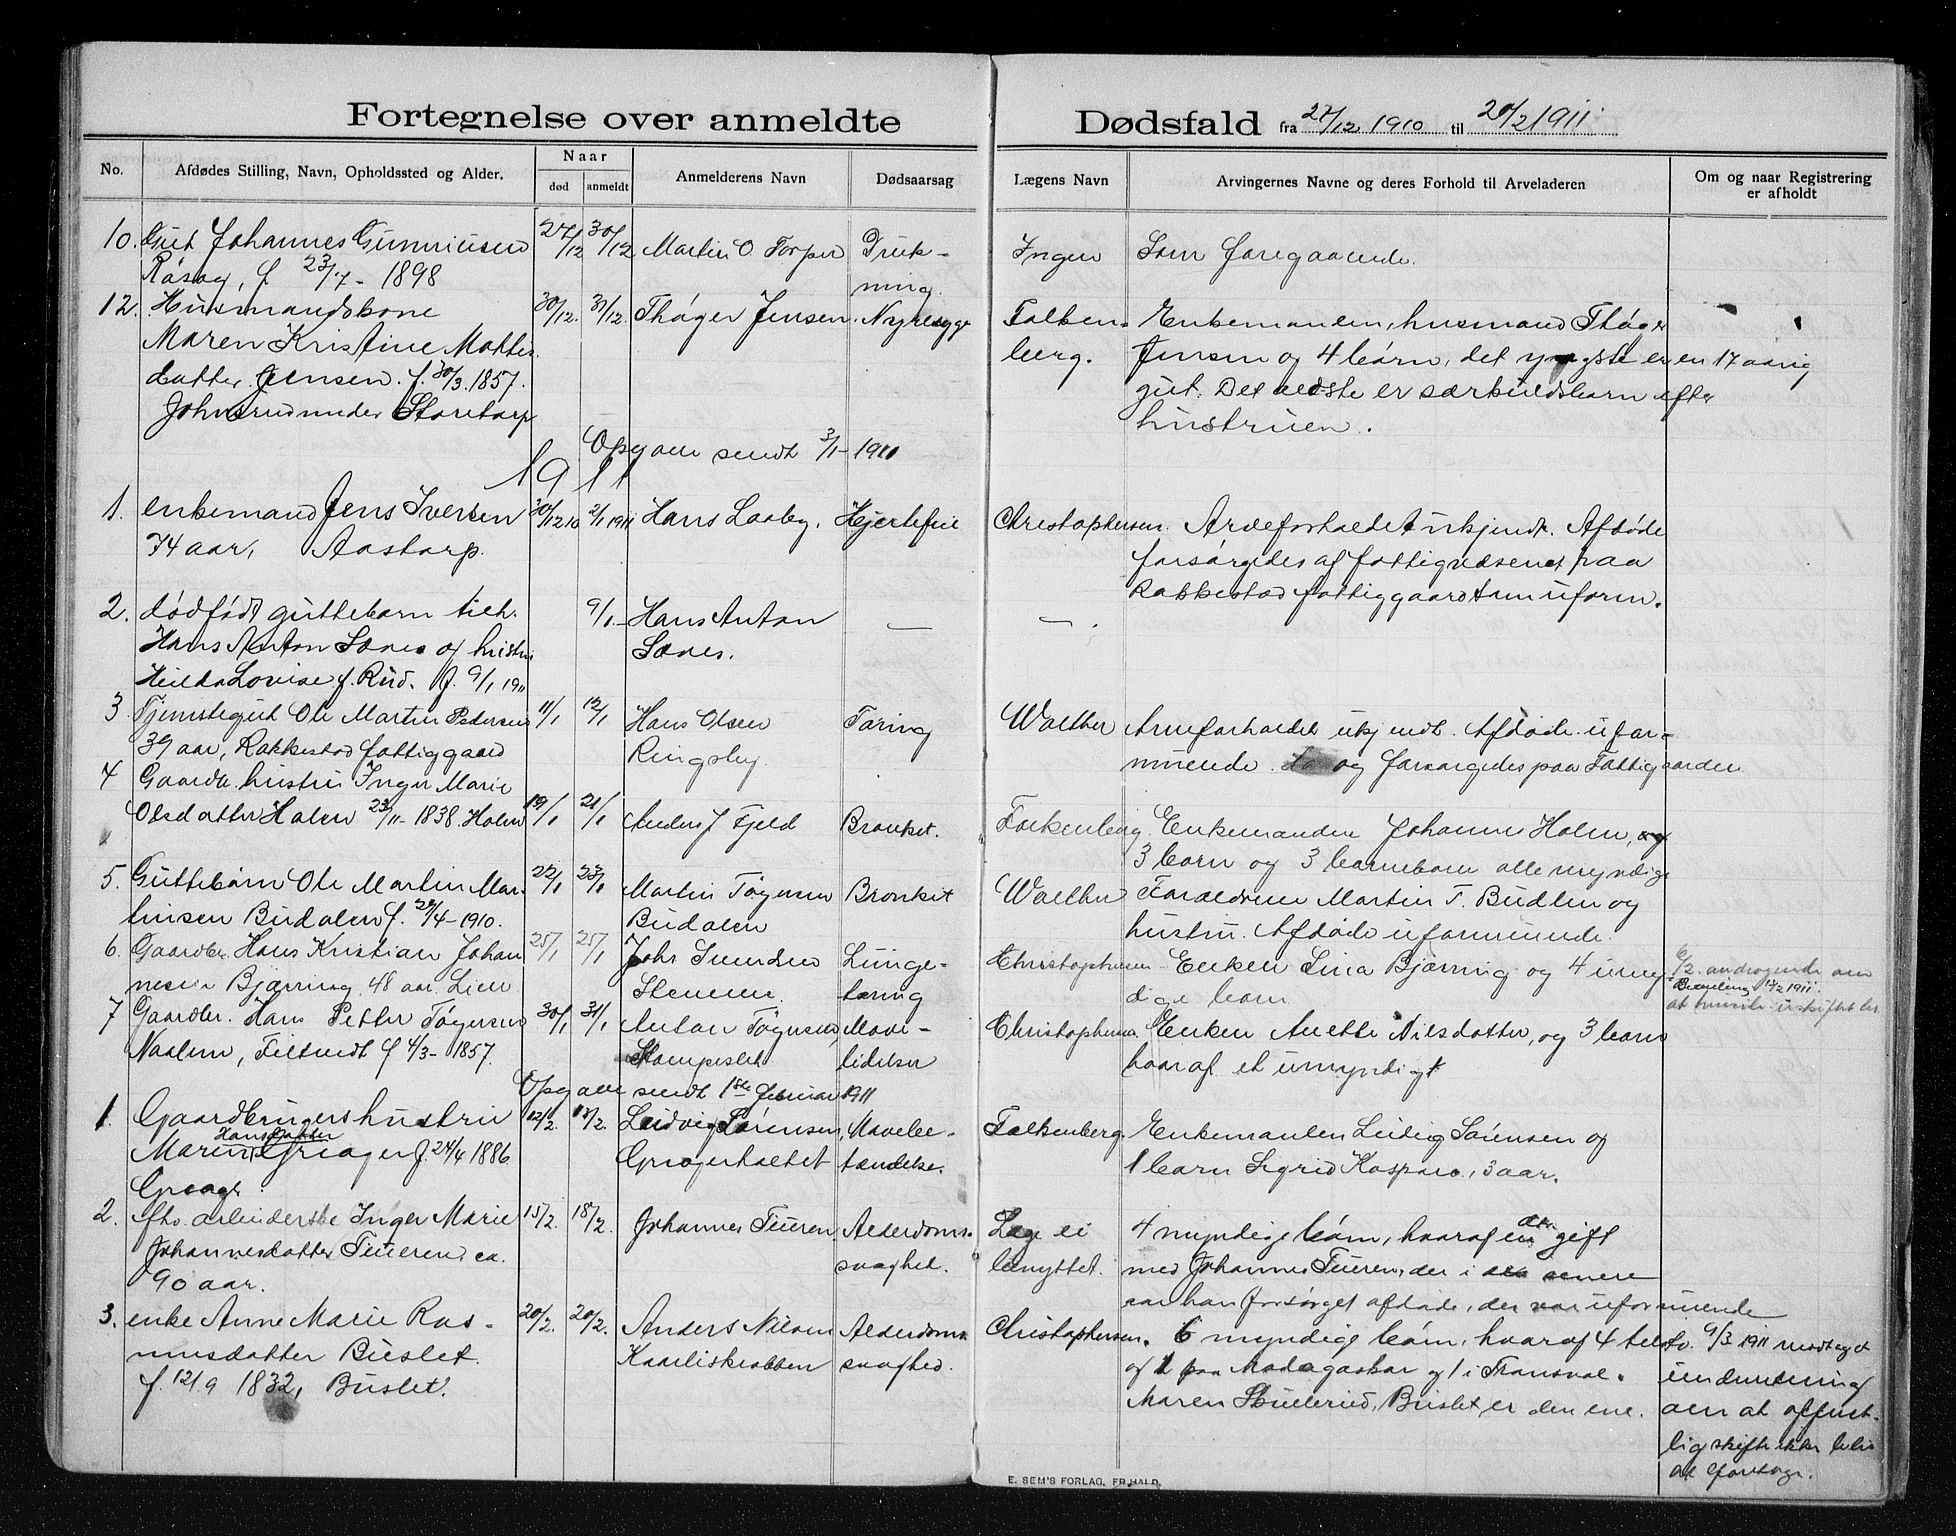 Fortegnelse over anmeldte Dødsfald fra 27/12 1910 til 20/2 1911
No. Afdødes Stilling, Navn, Opholdssted og Alder. Naar død anmeldt Anmelderens Navn Dødsaarsag Lægens Navn Arvingernes Navne og deres Forhold til Arveladeren Om og naar Registrering er afholdt
10. Gut Johannes 27/12 30/12 Martin O. Torper Druk- Ingen Som foregaaende.
f 23/7 - 1898 ning.
12. Husmandskone 30/12. 31/12. Thøger Jensen. Nyresyge Falken- Enkemanden, husmand Thøger
Maren Kristine Mattes berg. Jensen og 4 børn, det yngste er en 17 aarig
datter Jensen. f. 30/3. 1857. gut. Det ældste er særkuldsbarn efter
Johnsrud under Storetorp hustruen.
Opgave sendt 3/1- 1911
1911
1. enkemand Jens Iversen 30/12 10 2/1 1911 Hans Laaby. Hjertefeil Christophersen. Arveforholdet ukjendt. Afdøde
74 aar, Aastorp. forsørgedes af fattigvæsenet paa
Rakkestad fattiggaard som uform.
2. dødfødt guttebarn tilh. 9/1 Hans Anton — — .
Hans Anton Sæves og hustru Sæves.
Hilda Lovise f. Rud. f. 9/1 1911
3 Tjenstegut Ole Martin Pedersen 11/1 12/1 Hans Olsen Tæring Walther Arveforholdet ukjendt. Afdøde ufor-
39 aar, Rakkestad fattiggaard Ringsby. muende og forsørgedes paa Fattiggaarden
4 Gaardbr. hustru Inger Marie
Olsdatter Holen 23/11- 1838. Holen 19/1 21/1 Anders J Fjeld Bronket. Falkenberg. Enkemanden Johannes Holen, og
3 børn og 3 barnebørn alle myndige
5. Guttebarn Ole Martin Mar- 22/1 23/1 Martin Tøgersen Bronket Walther Forældrene Martin T. Budalen og
tinsen Budalen f. 29/4 - 1910. Budalen hustru. Afdøde uformuende.
6. Gaardbr. Hans Kristian Johan 25/1 25/1 Johs Svendsen Lunge- Christophersen Enken Lina Bjørning og 4 umyn- 6/2. andragende om
nesen Bjørning 48 aar Lien Stenerøe. tæring dige børn Bevilling 14/2 1911.
7 Gaardbr. Hans Petter Tøgersen 30/1 31/1 Anton Tøgersen, Mave- Christophersen Enken Anette Nilsdatter, og 3 børn
f 4/3- 1857. Stompeslet lidelser hvoraf et umyndigt
Opgave sendt 1ste februar 1911
1. Gaardbrugers hustru 12/2. 13/2. Ludvig Sørensen, Mavebe- Falkenberg. Enkemanden Ludvig Sørensen og
Maren Hansdatter f. 24/4 1886 tændelse. 1 barn Sigrid Kaspara, 3 aar.
2. fhv. arbeiderske Inger Marie 15/2. 18/2. Johannes Tueren Alderdoms- Læge ei 4 myndige børn, hvoraf en dtr. gift
Johannesdatter Tueren ca. svaghet. benyttet. med Johannes Tueren, der i senere
90 aar. aar har forsørget afdøde, der var uformuende
3. enke Anne Marie Ras- 20/2. 20/2. Anders Nilsen Alderdoms Christophersen. 6 myndige børn, hvoraf 4 tilst. 9/3 1911 modtaget
musdatter Buslet. Kaarliskrobben svaghed. og 1 paa Madagaskar og 1 i Transval.
f. 12/9 1832, Buslet. Maren Skulerud, Buslet er den ene. om at offent-
lig skifte ikke blir
at foretage.
E. SEM'S FORLAG, FR.HALD.